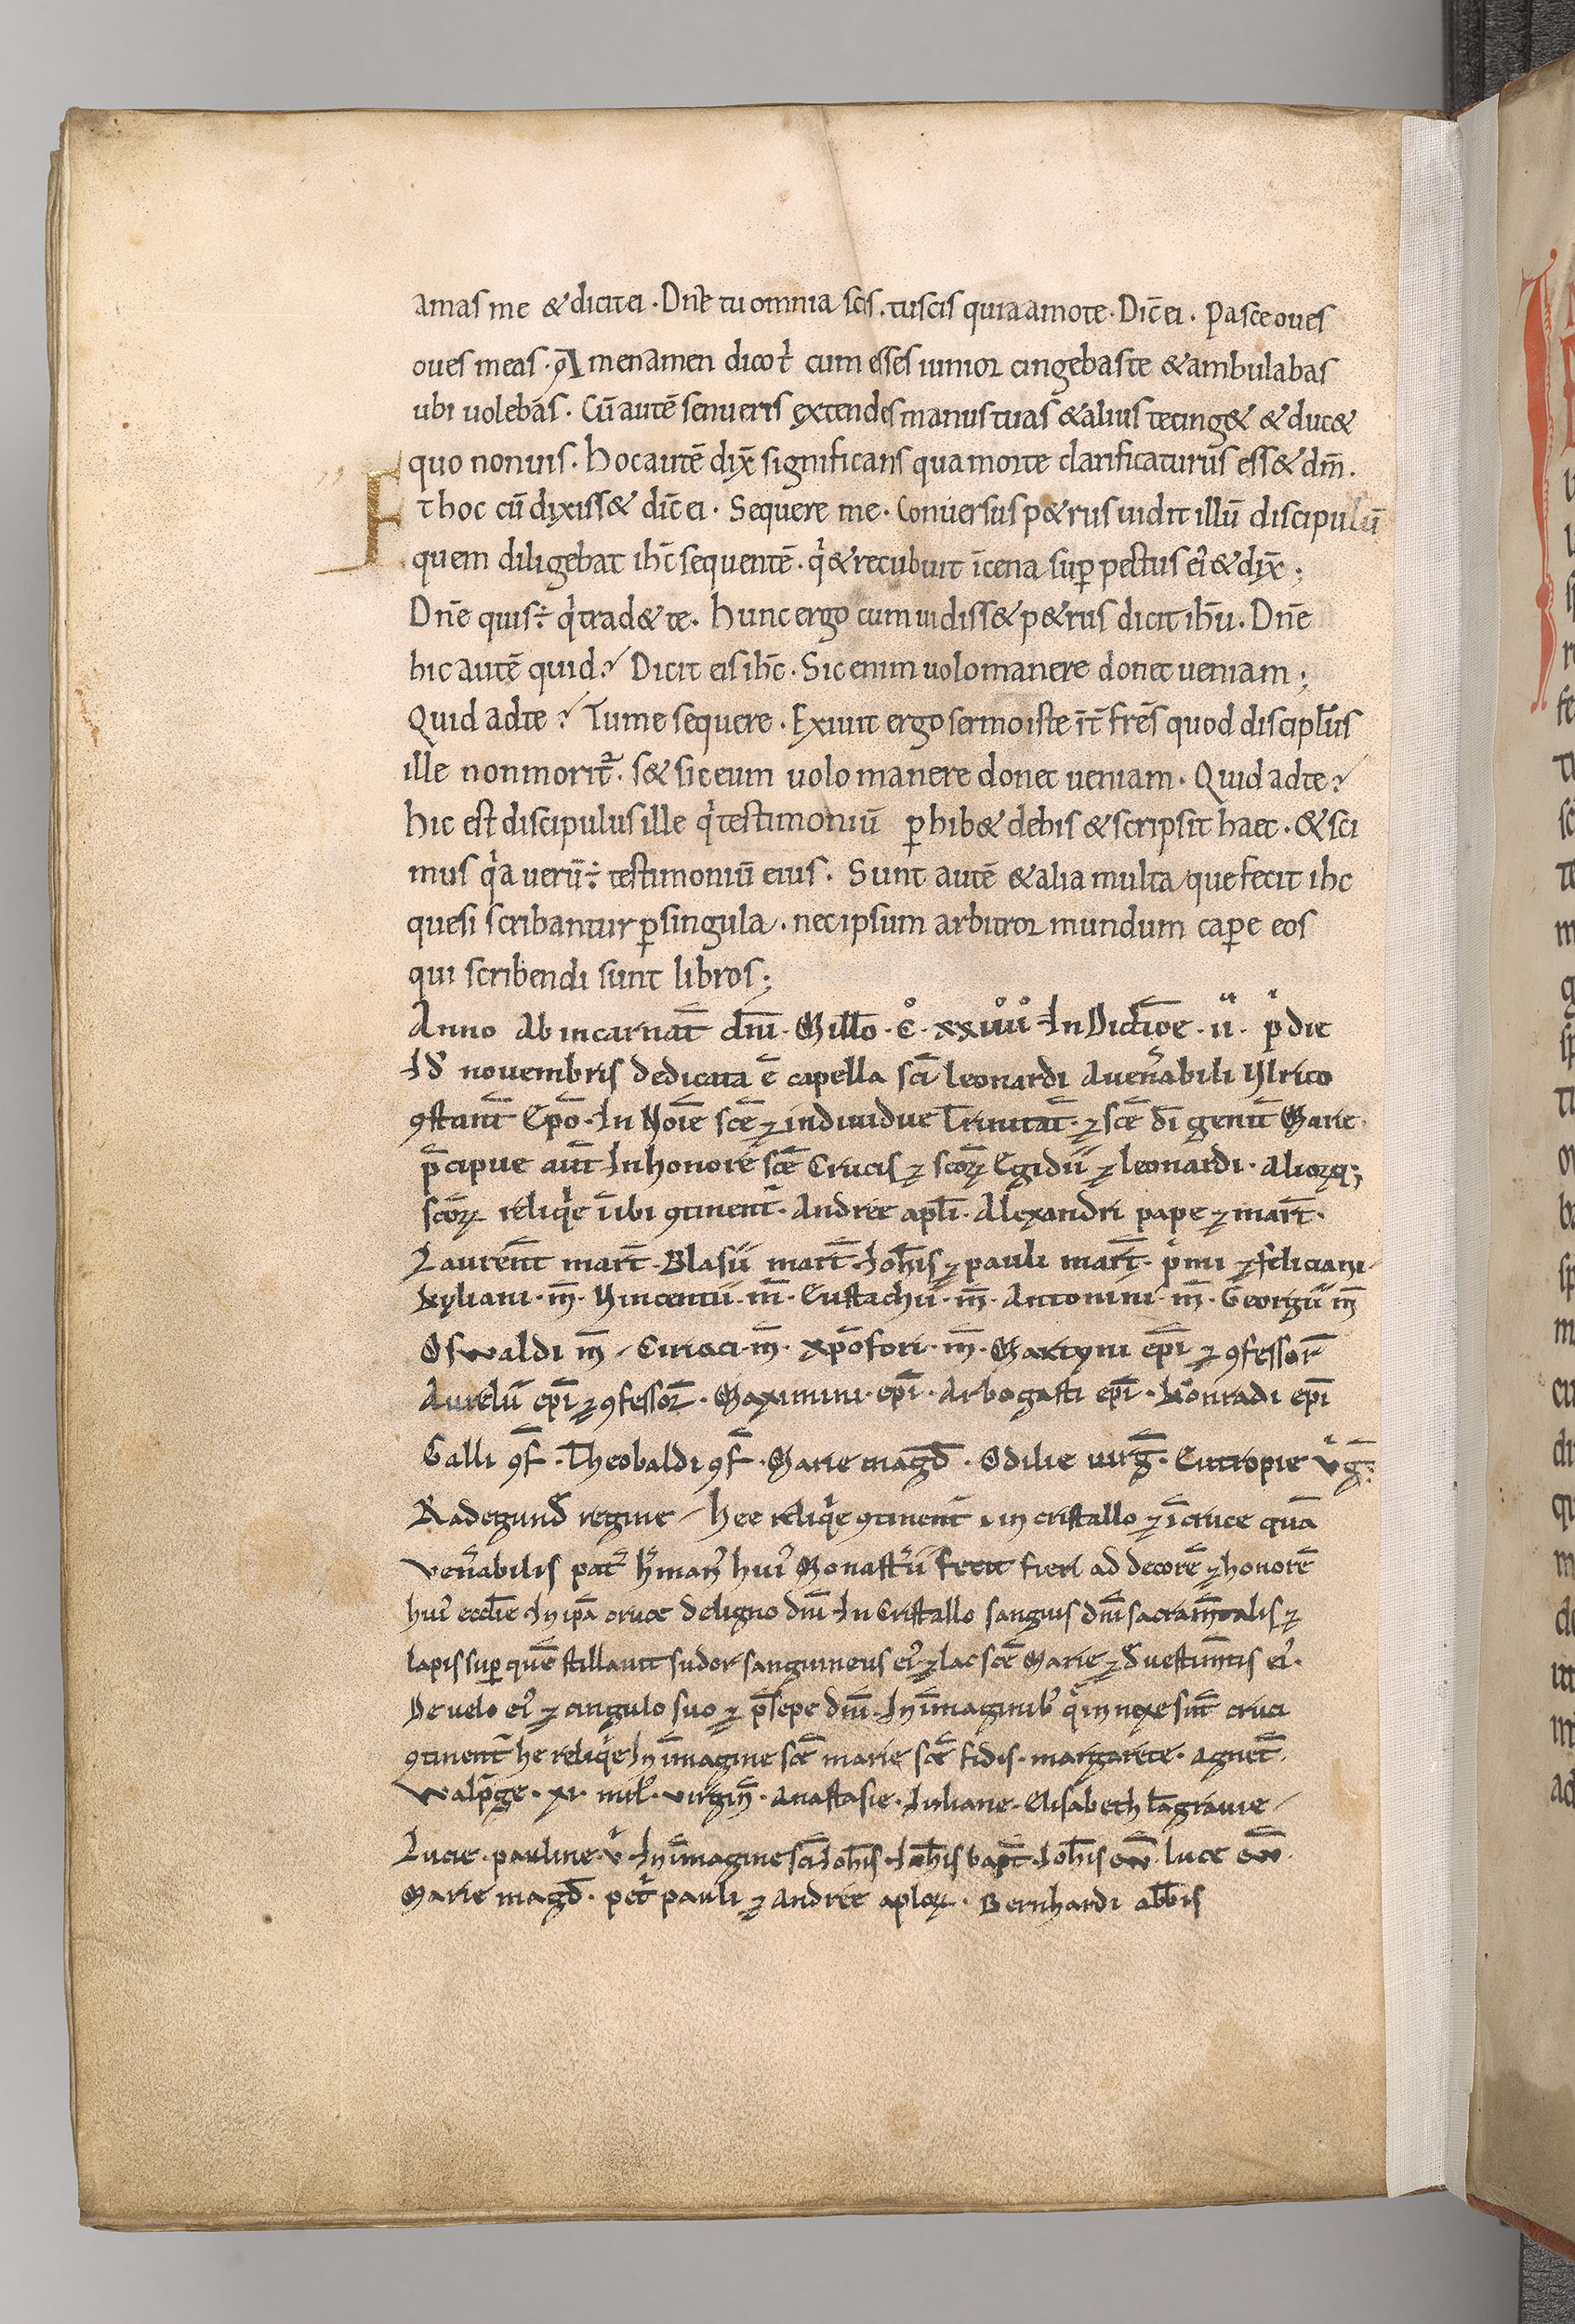 amas me & dicit ei · Dn̄e tu omnia scis . tu scis quia amo te · Dic̄ ei · Pasce oues
oues meas · Amen amen dico t̄ cum esses iunior cingebas te & ambulabas
ubi uolebas · Cū autē senueris extendes manus tuas & alius te cing& & duc&
quo non uis · Hoc autē dix̄ significans qua morte clarificaturus ess& dm̄ .
Et hoc cū dixiss& dic̄ ei · Sequere me · Conuersus p&rus uidit illū discipulū
quem diligebat ihc̄ sequentē · q̇ & recubuit ī cena sup̱ pectus ei᾽ & dix̄ ;
Dn̄e quis ÷ q̇ trad& te · Hunc ergo cum uidiss& p&rus dicit ihū · Dn̄e
hic autē quid ? Dicit ei ihc̄ · Sic enim uolo manere donec ueniam ;
Quid ad te ? Tu me sequere · Exiuit ergo sermo iste īt̄ frēs quod discipl̄us
ille non morit᷑ · s& sic eum uolo manere donec ueniam · Quid ad te ?
hic est discipulus ille q̇ testimoniū ꝑhib& de his & scripsit haec · & sci
mus q̇a uerū ÷ testimoniū eius . Sunt autē & alia multa que fecit ihc
que si scribantur ꝑ singula · nec ipsum arbitror mundum capꝑe eos
qui scribendi sunt libros ;
Anno ab incarnat̄ dnī · Mill̄o · c̊ · xxiiii̊ · In Dictiōe · ii · p̍die
Id᷑ nouembris dedicata ē capella scī leonardi a uen᷑abili Ỽlrico
ꝯstant̄ ep̄o · In noīe scē ⁊ indiuidue Trinitat̄ · ⁊ scē dī genit̄ Marie
p̄cipue aut̄ in honore scē Crucis ⁊ scōꝝ Egidii ⁊ leonardi · aliorꝫ q;
scōꝝ reliq̍e īibi ꝯtinent᷑ · Andree apl̄i · Alexandri pape ⁊ mart̄ ·
Laurent̄ mart̄ · Blasii mart̄ · Ioh̄is ⁊ pauli mart̄ · p̍mi ⁊ feliciani
kyliani · m̄ · Vincentii · m̄ · Eustachii · m̄ · Antonini · m̄ · Georgii m̄
Oswaldi m̄ · Ciriaci · m̄ · xp̄ofori · m̄ · Martyni ep̄i ⁊ ꝯfessor̄
Aurelii ep̄i ⁊ ꝯfessor̄ · Maximini · ep̄i · Arbogasti ep̄i · kůonradi ep̄i
Galli ꝯf̄ · Theobaldi ꝯf̄ · Marie magd̄ · Odilie uirḡ · Eutropie v̍ḡ ·
Radegund᷑ regine / hee reliq̍e ꝯtinent᷑ in cristallo ⁊ ī cruce quā
ven᷑abilis pat᷑ h᷑man᷑ hui᾽ Monast᷑ii fecit fieri ad decorē ⁊ honorē
hui᾽ eccl̄ie · In ip̄a cruce de ligno dnī · In Cristallo sanguis dnī sacram̄talis ⁊
lapis sup̱ quē stillauit sudor sanguineus ei᾽ ⁊ lac scē Marie ⁊ d᷑ uestim̄tis ei᾽ ·
De uelo ei᾽ ⁊ cingulo suo ⁊ p̄sepe dnī · In īmaginib᾽ q̄ innexe sūt cruci
ꝯtinent᷑ he reliq̍e In īmagine scē marie scē fidis · margarete · agnet̄ ·
Walp᷑ge · xi · mil᷑ · virgin̄ · anastasie · Iuliane · Elisabeth lāgrauie
Lucie · pauline · v̍ · In īmagine scī Ioh̄is · Ioh̄is bapt̄ · Ioh̄is ew̄ · luce ew̄ ·
Marie magd̄ · pet̍ pauli ⁊ andree aploꝝ · Bernhardi abb̄is